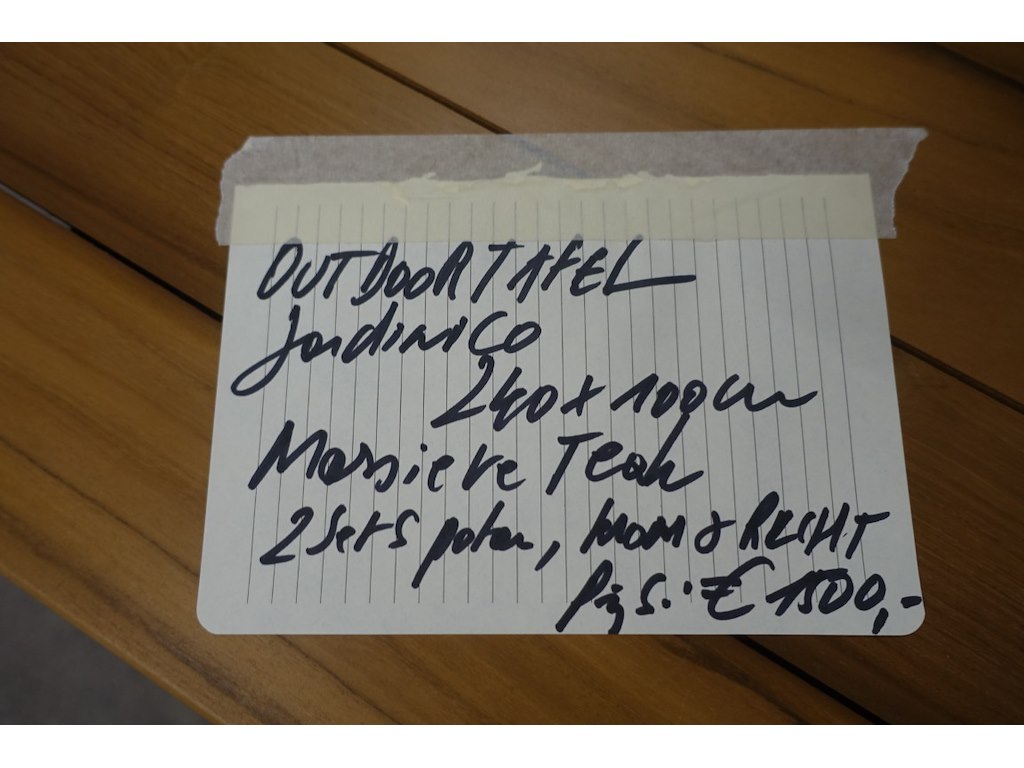 OUTDOOR TAFEL
JardiniCo
240 x 100 cm
Massieve Teak
2 sets poten, krom & RECHT
Prijs: € 1500,-